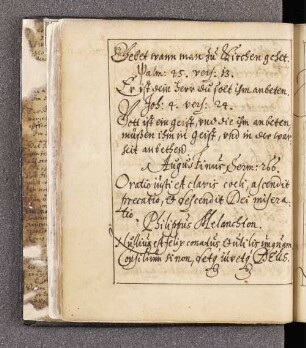 Gebet wann man zu Kirchen gehet.
Psalm: 45. vers: 13.
Er ist dein Herr du solt ihn anbeten.
Joh: 4. vers: 24.
Gott ist ein geist, vnd die ihn anbeten
müßen ihn in geist, vnd in der war
heit anbethen
Augustinus Serm: 266.
Oratio iusti est clavis coeli, ascendit
precatio, et descendit Dei misera
tio.
Philippus Melanchton.
Nullius est felix conatus et utilis unquam
Consilium si non detq iuvetq DEUS.